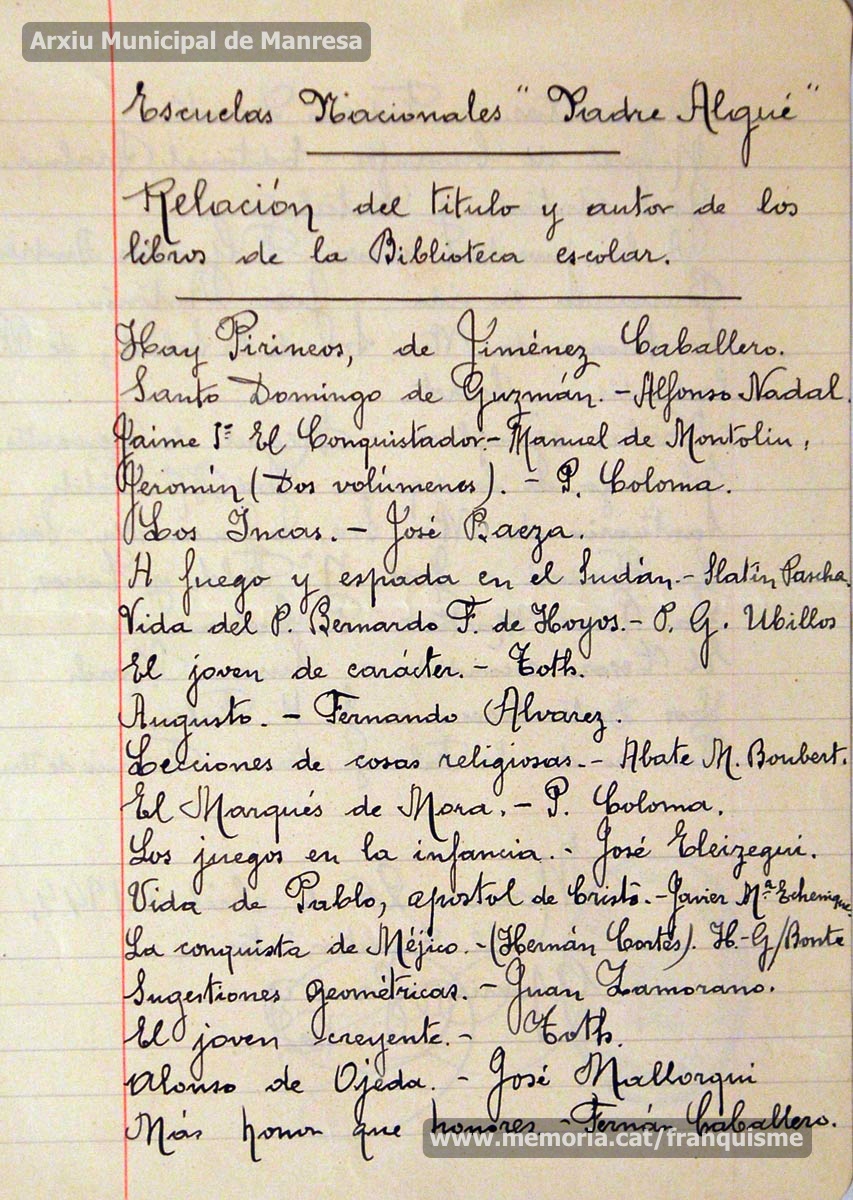 Arxiu Municipal de Manresa
Escuelas Nacionales "Padre Algué"
Relación del titulo y autor de los
libros de la Biblioteca escolar.
Hay Pirineos, de Jiménez Caballero.
Santo Domingo de Guzmán. - Alfonso Nadal.
Jaime Iº El Conquistador. - Manuel de Montoliu,
Jeromín (Dos volúmenes). - P. Coloma.
Los Incas. - José Baeza.
A fuego y espada en el Sudán. - Slatín Pascha.
Vida del P. Bernardo F. de Hoyos. - P. G. Ubillos
El joven de carácter. - Toth.
Augusto. - Fernando Alvarez.
Lecciones de cosas religiosas. - Abate M. Boubert.
El Marqués de Mora. - P. Coloma.
Los juegos en la infancia. - José Eleizegui.
Vida de Pablo, apostol de Cristo. - Javier Mª Echenique.
La conquista de Méjico. - (Hernán Cortés). H.-G/Bonte
Sugestiones geométricas. - Juan Zamorano.
El joven creyente. - Toth.
Alonso de Ojeda. - José Mallorqui
Más honor que honores - Fernán Caballero.
www.memoria.cat/franquisme